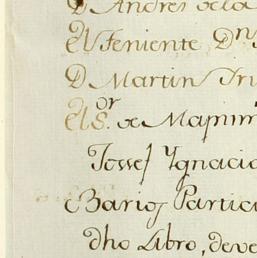 D Andres de la
El Teniente Dn
D Martin Tru
El Sor de Mapim
Jossef Ygnacio
Barios Partici
dho Libro, deve